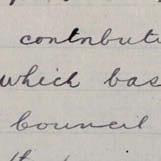 contribute
which bas
Council